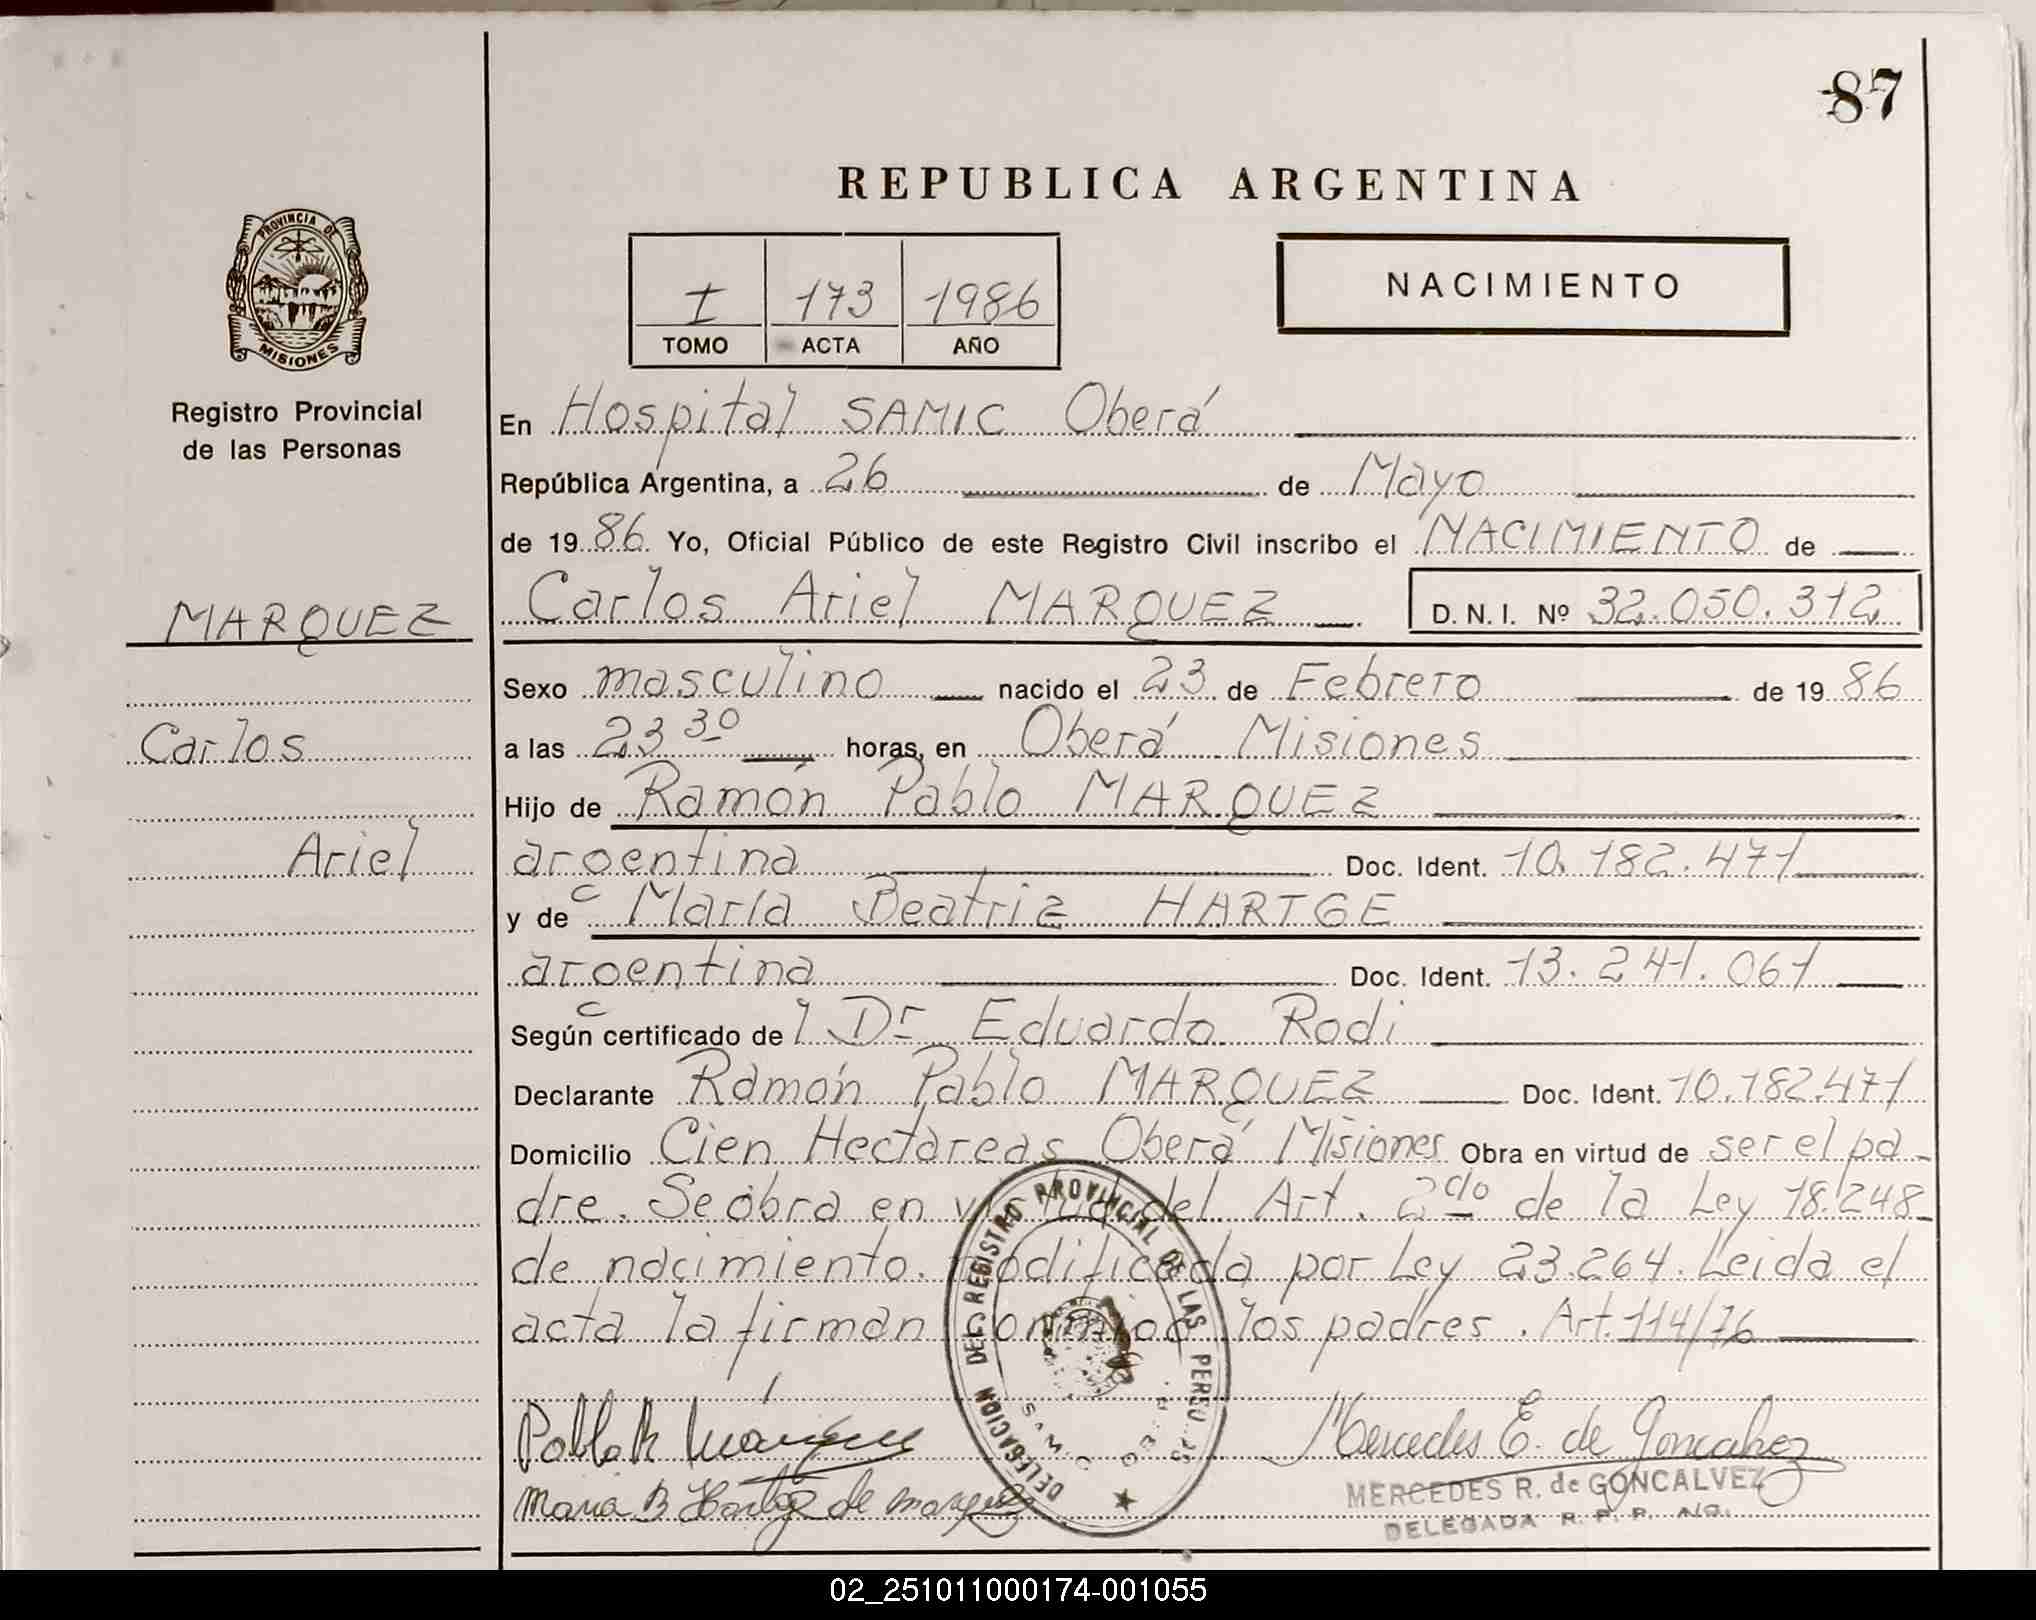 87
REPUBLICA ARGENTINA
PROVINCIA DE
MISIONES
Registro Provincial
de las Personas
I 173 1986
TOMO ACTA AÑO
NACIMIENTO
En Hospital SAMIC Oberá
República Argentina, a 26 de Mayo
de 1986 Yo, Oficial Público de este Registro Civil inscribo el NACIMIENTO de
MARQUEZ
Carlos
Ariel
Carlos Ariel MARQUEZ D. N. I. Nº 32.050.312
Sexo masculino nacido el 23 de Febrero de 1986
a las 23 30 horas, en Oberá Misiones
Hijo de Ramón Pablo MARQUEZ
argentina Doc. Ident. 10.182.471
y de María Beatriz HARTGE
argentina Doc. Ident. 13.241.061
Según certificado del Dr Eduardo Rodi
Declarante Ramón Pablo MARQUEZ Doc. Ident. 10.182.471
Domicilio Cien Hectareas Oberá Misiones Obra en virtud de ser el pa-
dre. Se obra en virtud del Art. 2do de la Ley 18.248-
de nacimiento. modificada por Ley 23.264. Leida el
acta la firman conmigo los padres. Art. 114/76
DELEGACION DEL REGISTRO PROVINCIAL DE LAS PERSONAS
Pablo R Márquez
Maria B Hartge de Marquez
Mercedes E. de Goncalvez
MERCEDES R. de GONCALVEZ
DELEGADA R. P. P. A/G.
02_251011000174-001055